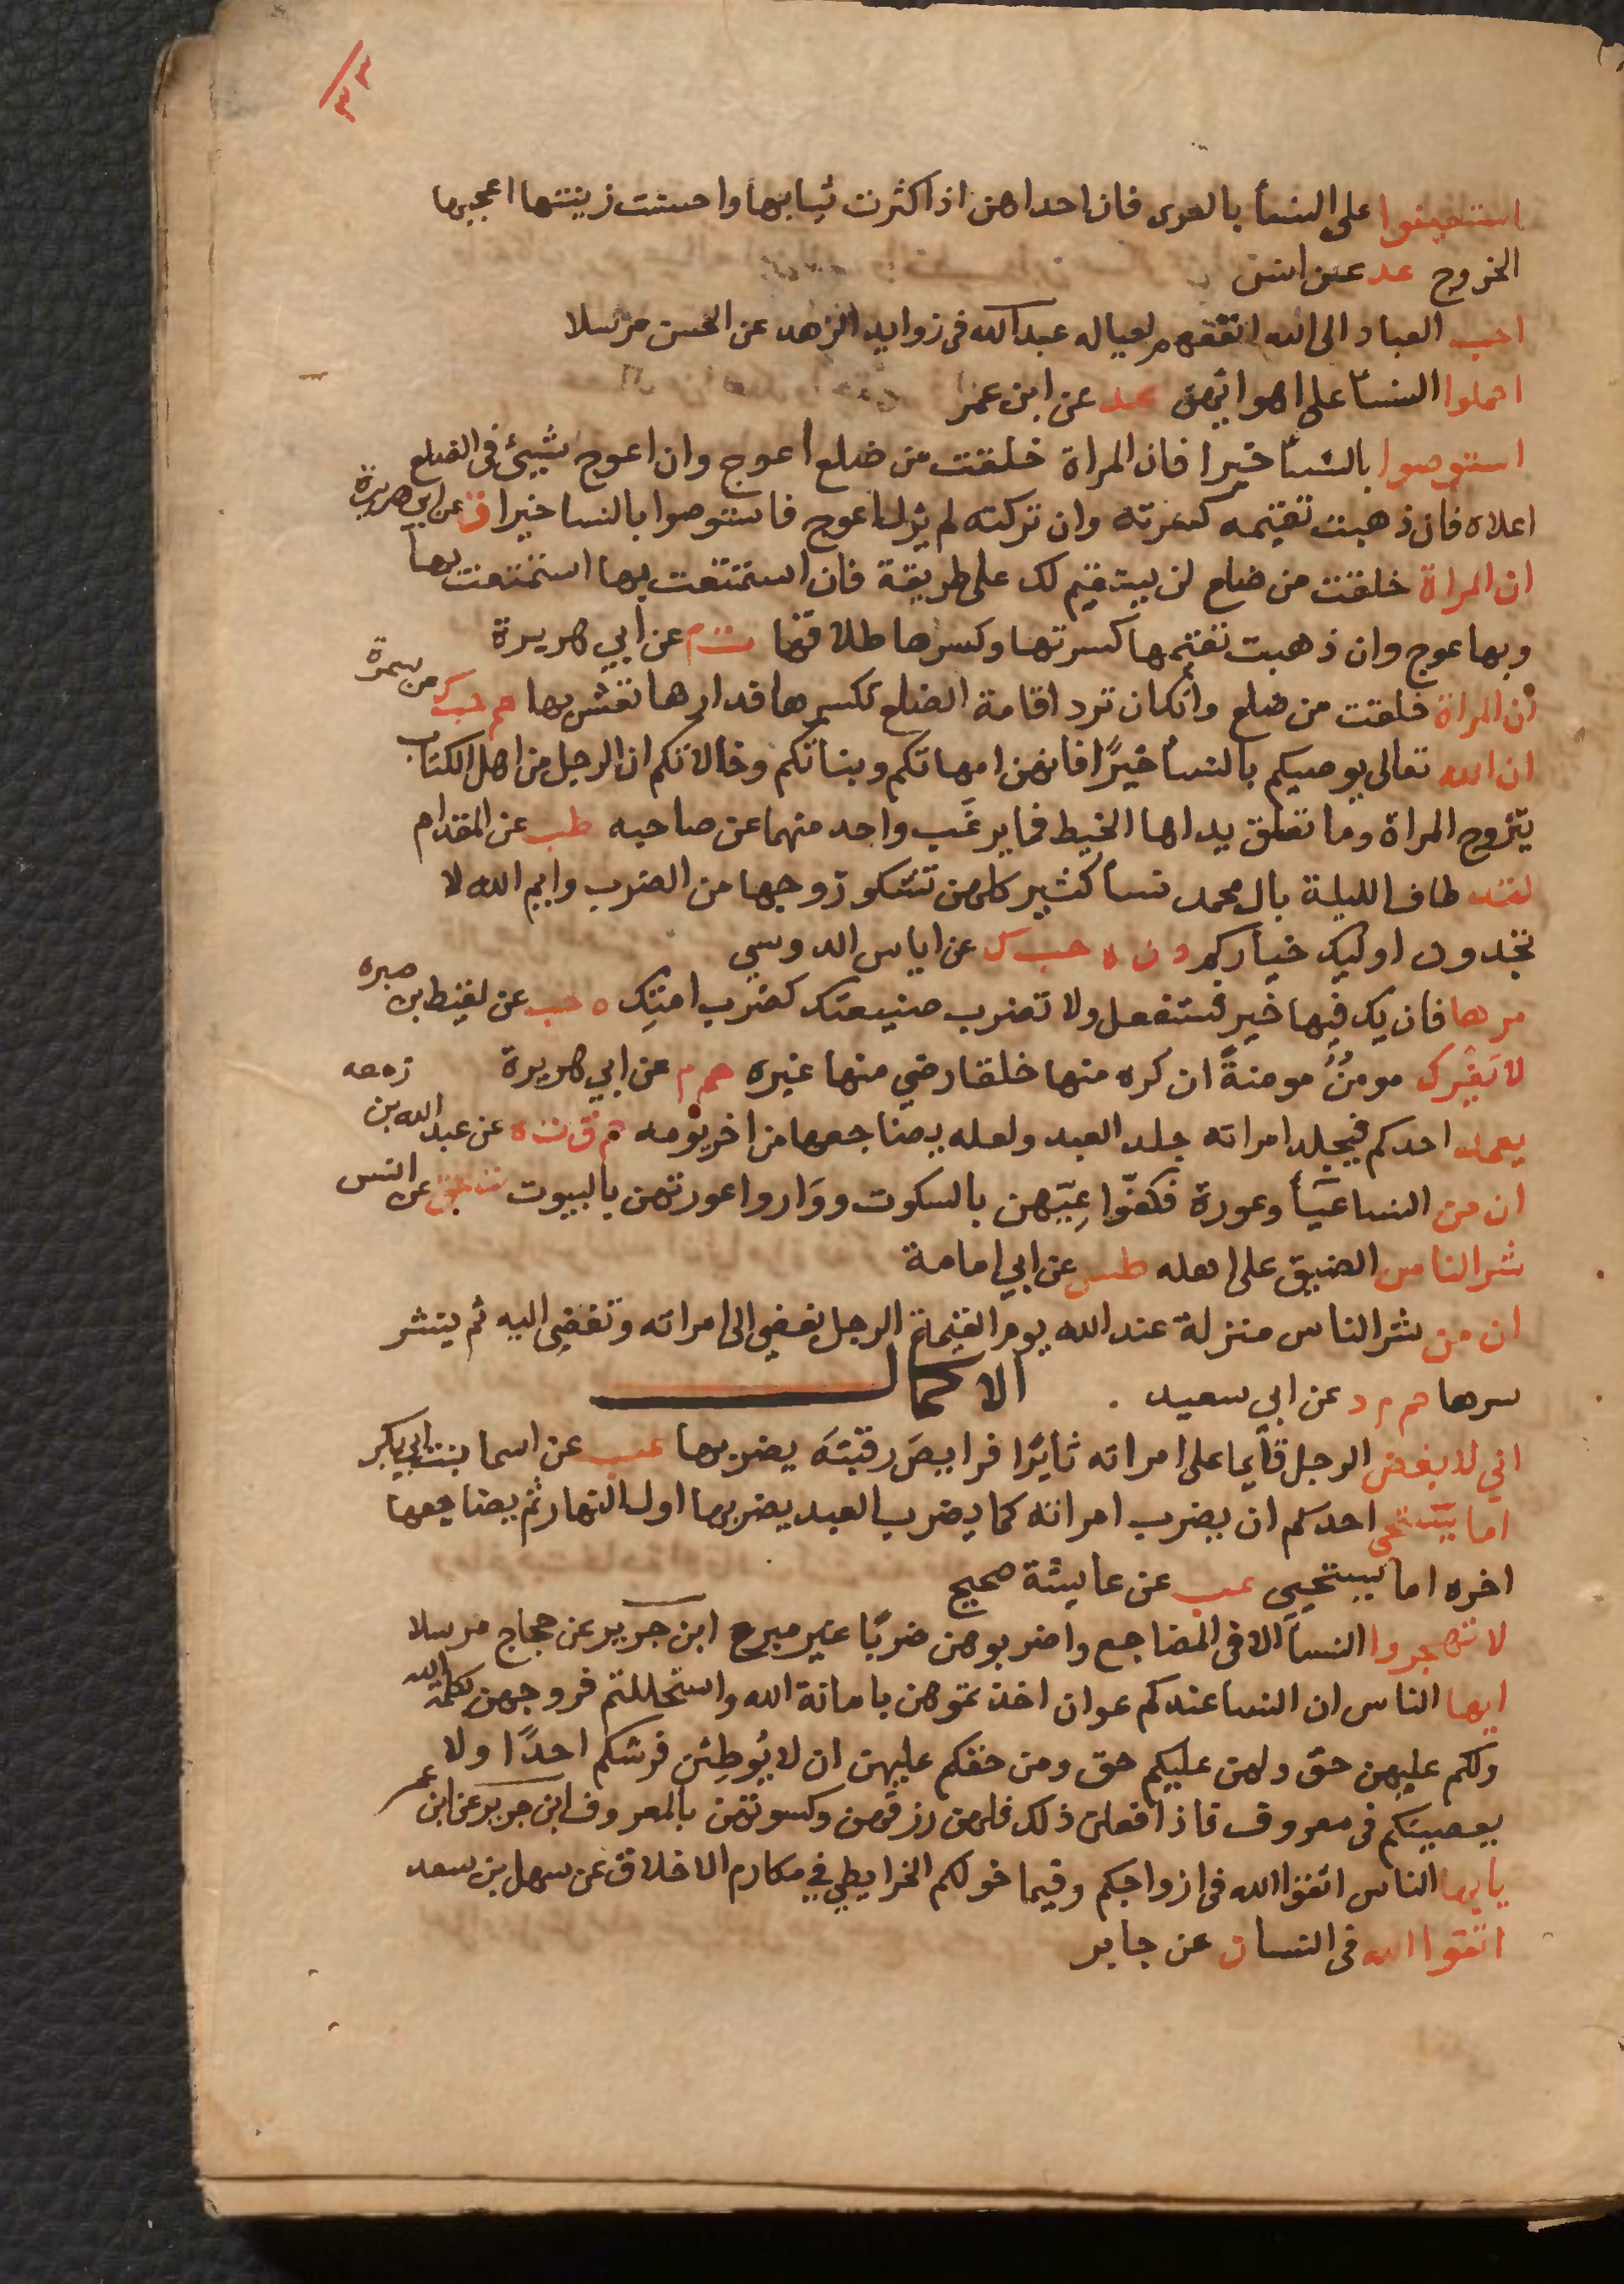 ٣٣
استعينوا على النسأ بالعرى فان احداهن اذا كثرت ثيابها واحسنت زينتها اعجبها
الخروج عد عن انس
احب العباد الى الله انفعهم لعياله عبد الله فى زوايد الزهد عن الحسن مرسلا
احملوا النسأ على اهوائهن عد عن ابن عمر
استوصوا بالنسأ خيرا فان المراة خلقت من ضلع اعوج وان اعوج شيئ فى الضلع
اعلاه فان ذهبت تقيمه كسرته وان تركته لم يزل اعوج فاستوصوا بالنسا خيرا ق عن ابى هريرة
ان المراة خلقت من ضلع لن يستقيم لك على طريقة فان استمتعت بها استمتعت بها
وبها عوج وان ذهبت تقيمها كسرتها وكسرها طلاقها ت م عن ابي هريرة
ان المراة خلقت من ضلع وانك ان ترد اقامة الضلع تكسرها فدارها تعش بها حم حب ك عن سمرة
ان الله تعالى يوصيكم بالنسأ خيرًا فانهن امهاتكم وبناتكم وخالاتكم ان الرجل من اهل الكتاب
يتزوج المراة وما تعلق يداها الخيط فما يرغب واحد منهما عن صاحبه طب عن المقدام
لقد طاف الليلة بال محمد نسأ كثير كلهن تشكو زوجها من الضرب وايم الله لا
تجدون اوليك خياركم د ن ه حب ك عن اياس الدوسي
مرها فان يك فيها خير فستفعل ولا تضرب ضيعتك كضرب امتك ه حب عن لقيط بن صبره
لا يفرك مومنٌ مومنةً ان كره منها خلقا رضي منها غيره حم م عن ابي هريرة
يعمد احدكم فيجلد امراته جلد العبد ولعله يضاجعها من اخر يومه حم ق ت ه عن عبد الله بن زمعه
ان من النسا عيّأ وعورة فكفّوا عِيّهن بالسكوت ووَاروا عورتهن بالبيوت عق عن انس
شر الناس الضيق على اهله طس عن ابي امامة
ان من شر الناس منزلة عند الله يوم القيمة الرجل يفضي الى امراته وتفضي اليه ثم ينشر
سرها حم م د عن ابي سعيد . الاكمال
اني لابغض الرجل قأيما على امراته ثايرًا فرايصَ رقبتَه يضربها عب عن اسما بنت ابي بكر
اما يستحى احدكم ان يضرب امراته كما يضرب العبد يضربها اول النهار ثم يضاجعها
اخره اما يستحيي عب عن عايشة صحيح
لا تهجروا النسأ الا فى المضاجع واضربوهن ضربًا غير مبرح ابن جرير عن حجاج مرسلا
ايها الناس ان النسا عندكم عوان اخذتموهن بامانة الله واستحللتم فروجهن بكلمة الله
ولكم عليهن حق ولهن عليكم حق ومن حقكم عليهن ان لا يُوطِئن فرشكم احدًا ولا
يعصينكم فى معروف فاذا فعلن ذلك فلهن رزقهن وكسوتهن بالمعروف ابن جرير عن ابن عمر
يا يها الناس اتقوا الله فى ازواجكم وفيما خولكم الخرايطي في مكارم الاخلاق عن سهل بن سعد
اتقوا الله فى النسا ن عن جابر